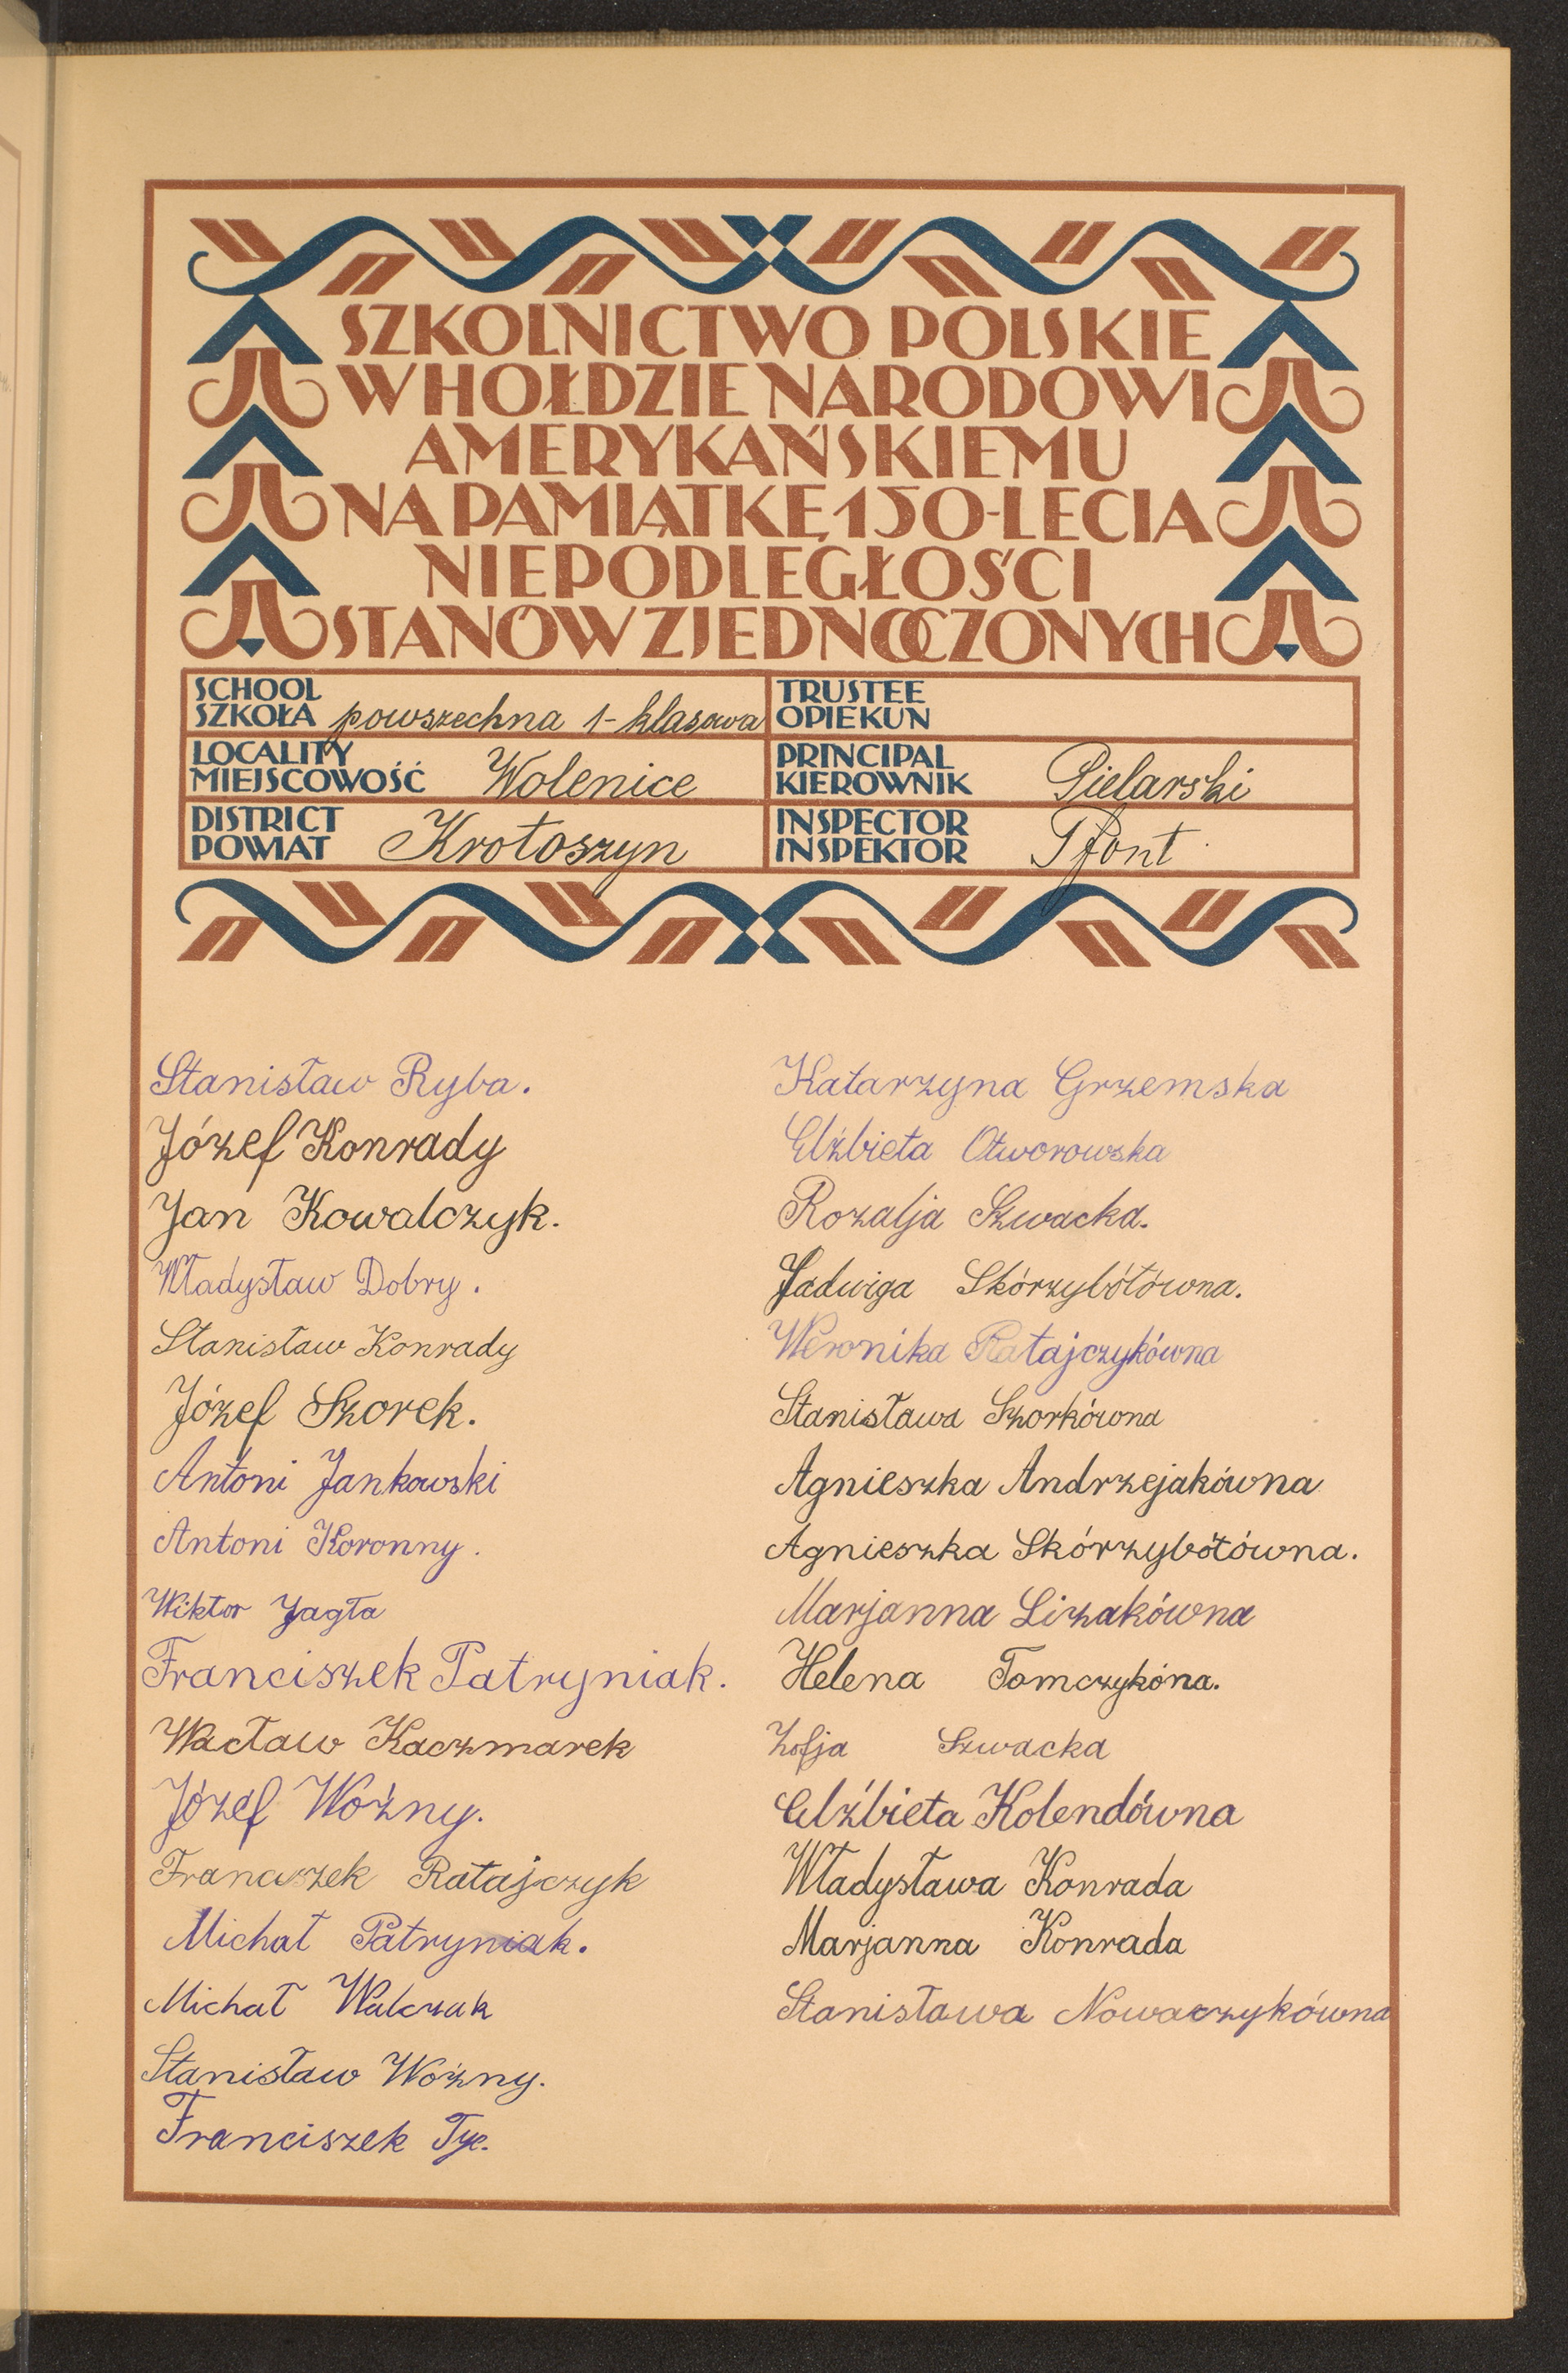 SZKOLNICTWO POLSKIE
W HOŁDZIE NARODOWI
AMERYKAŃSKIEMU
NA PAMIĄTKĘ 150-LECIA
NIEPODLEGŁOŚCI
STANÓW ZJEDNOCZONYCH
SCHOOL
SZKOŁA powszechna 1-klasowa
TRUSTEE
OPIEKUN
LOCALITY
MIEJSCOWOŚĆ Wolenice
PRINCIPAL
KIEROWNIK Pielarski
DISTRICT
POWIAT Krotoszyn
INSPECTOR
INSPEKTOR Pfont
Stanisław Ryba.
Józef Konrady
Jan Kowalczyk.
Władysław Dobry.
Stanisław Konrady
Józef Szorek.
Antoni Jankowski
Antoni Koronny.
Wiktor Jagła
Franciszek Patryniak.
Wacław Kaczmarek
Józef Woźny.
Franciszek Ratajczyk
Michał Patryniak.
Michał Walczak
Stanisław Woźny.
Franciszek Tyc.
Katarzyna Grzemska
Elżbieta Otworowska
Rozalja Szwacka.
Jadwiga Skórzybótówna.
Weronika Ratajczykówna
Stanisława Szorkówna
Agnieszka Andrzejakówna
Agnieszka Skórzybótówna.
Marjanna Lizakówna
Helena Tomczykóna.
Zofja Szwacka
Elżbieta Kolendówna
Władysława Konrada
Marjanna Konrada
Stanisława Nowaczykówna